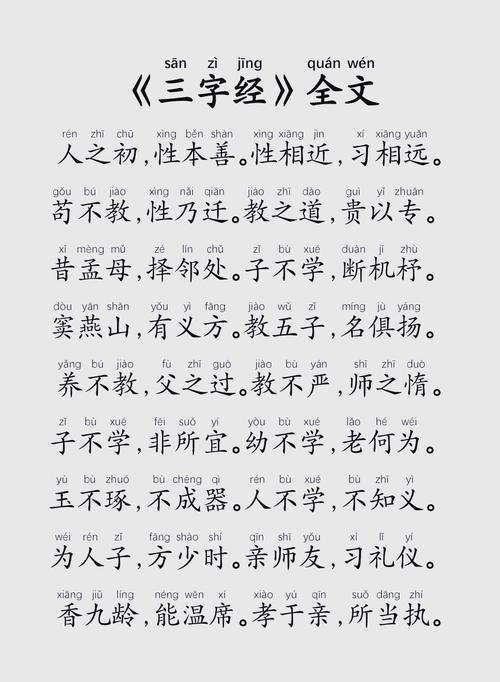 sān zì jīng quán wén
《三字经》全文
rén zhī chū xìng běn shàn xìng xiāng jìn xí xiāng yuǎn
人之初,性本善。性相近,习相远。
gǒu bú jiào xìng nǎi qiān jiào zhī dào guì yǐ zhuān
苟不教,性乃迁。教之道,贵以专。
xī mèng mǔ zé lín chǔ zǐ bù xué duàn jī zhù
昔孟母,择邻处。子不学,断机杼。
dòu yān shān yǒu yì fāng jiào wǔ zǐ míng jù yáng
窦燕山,有义方。教五子,名俱扬。
yǎng bú jiào fù zhī guò jiào bù yán shī zhī duò
养不教,父之过。教不严,师之惰。
zǐ bù xué fēi suǒ yí yòu bù xué lǎo hé wéi
子不学,非所宜。幼不学,老何为。
yù bù zhuó bù chéng qì rén bù xué bù zhī yì
玉不琢,不成器。人不学,不知义。
wéi rén zǐ fāng shào shí qīn shī yǒu xí lǐ yí
为人子,方少时。亲师友,习礼仪。
xiāng jiǔ líng néng wēn xí xiào yú qīn suǒ dāng zhí
香九龄,能温席。孝于亲,所当执。